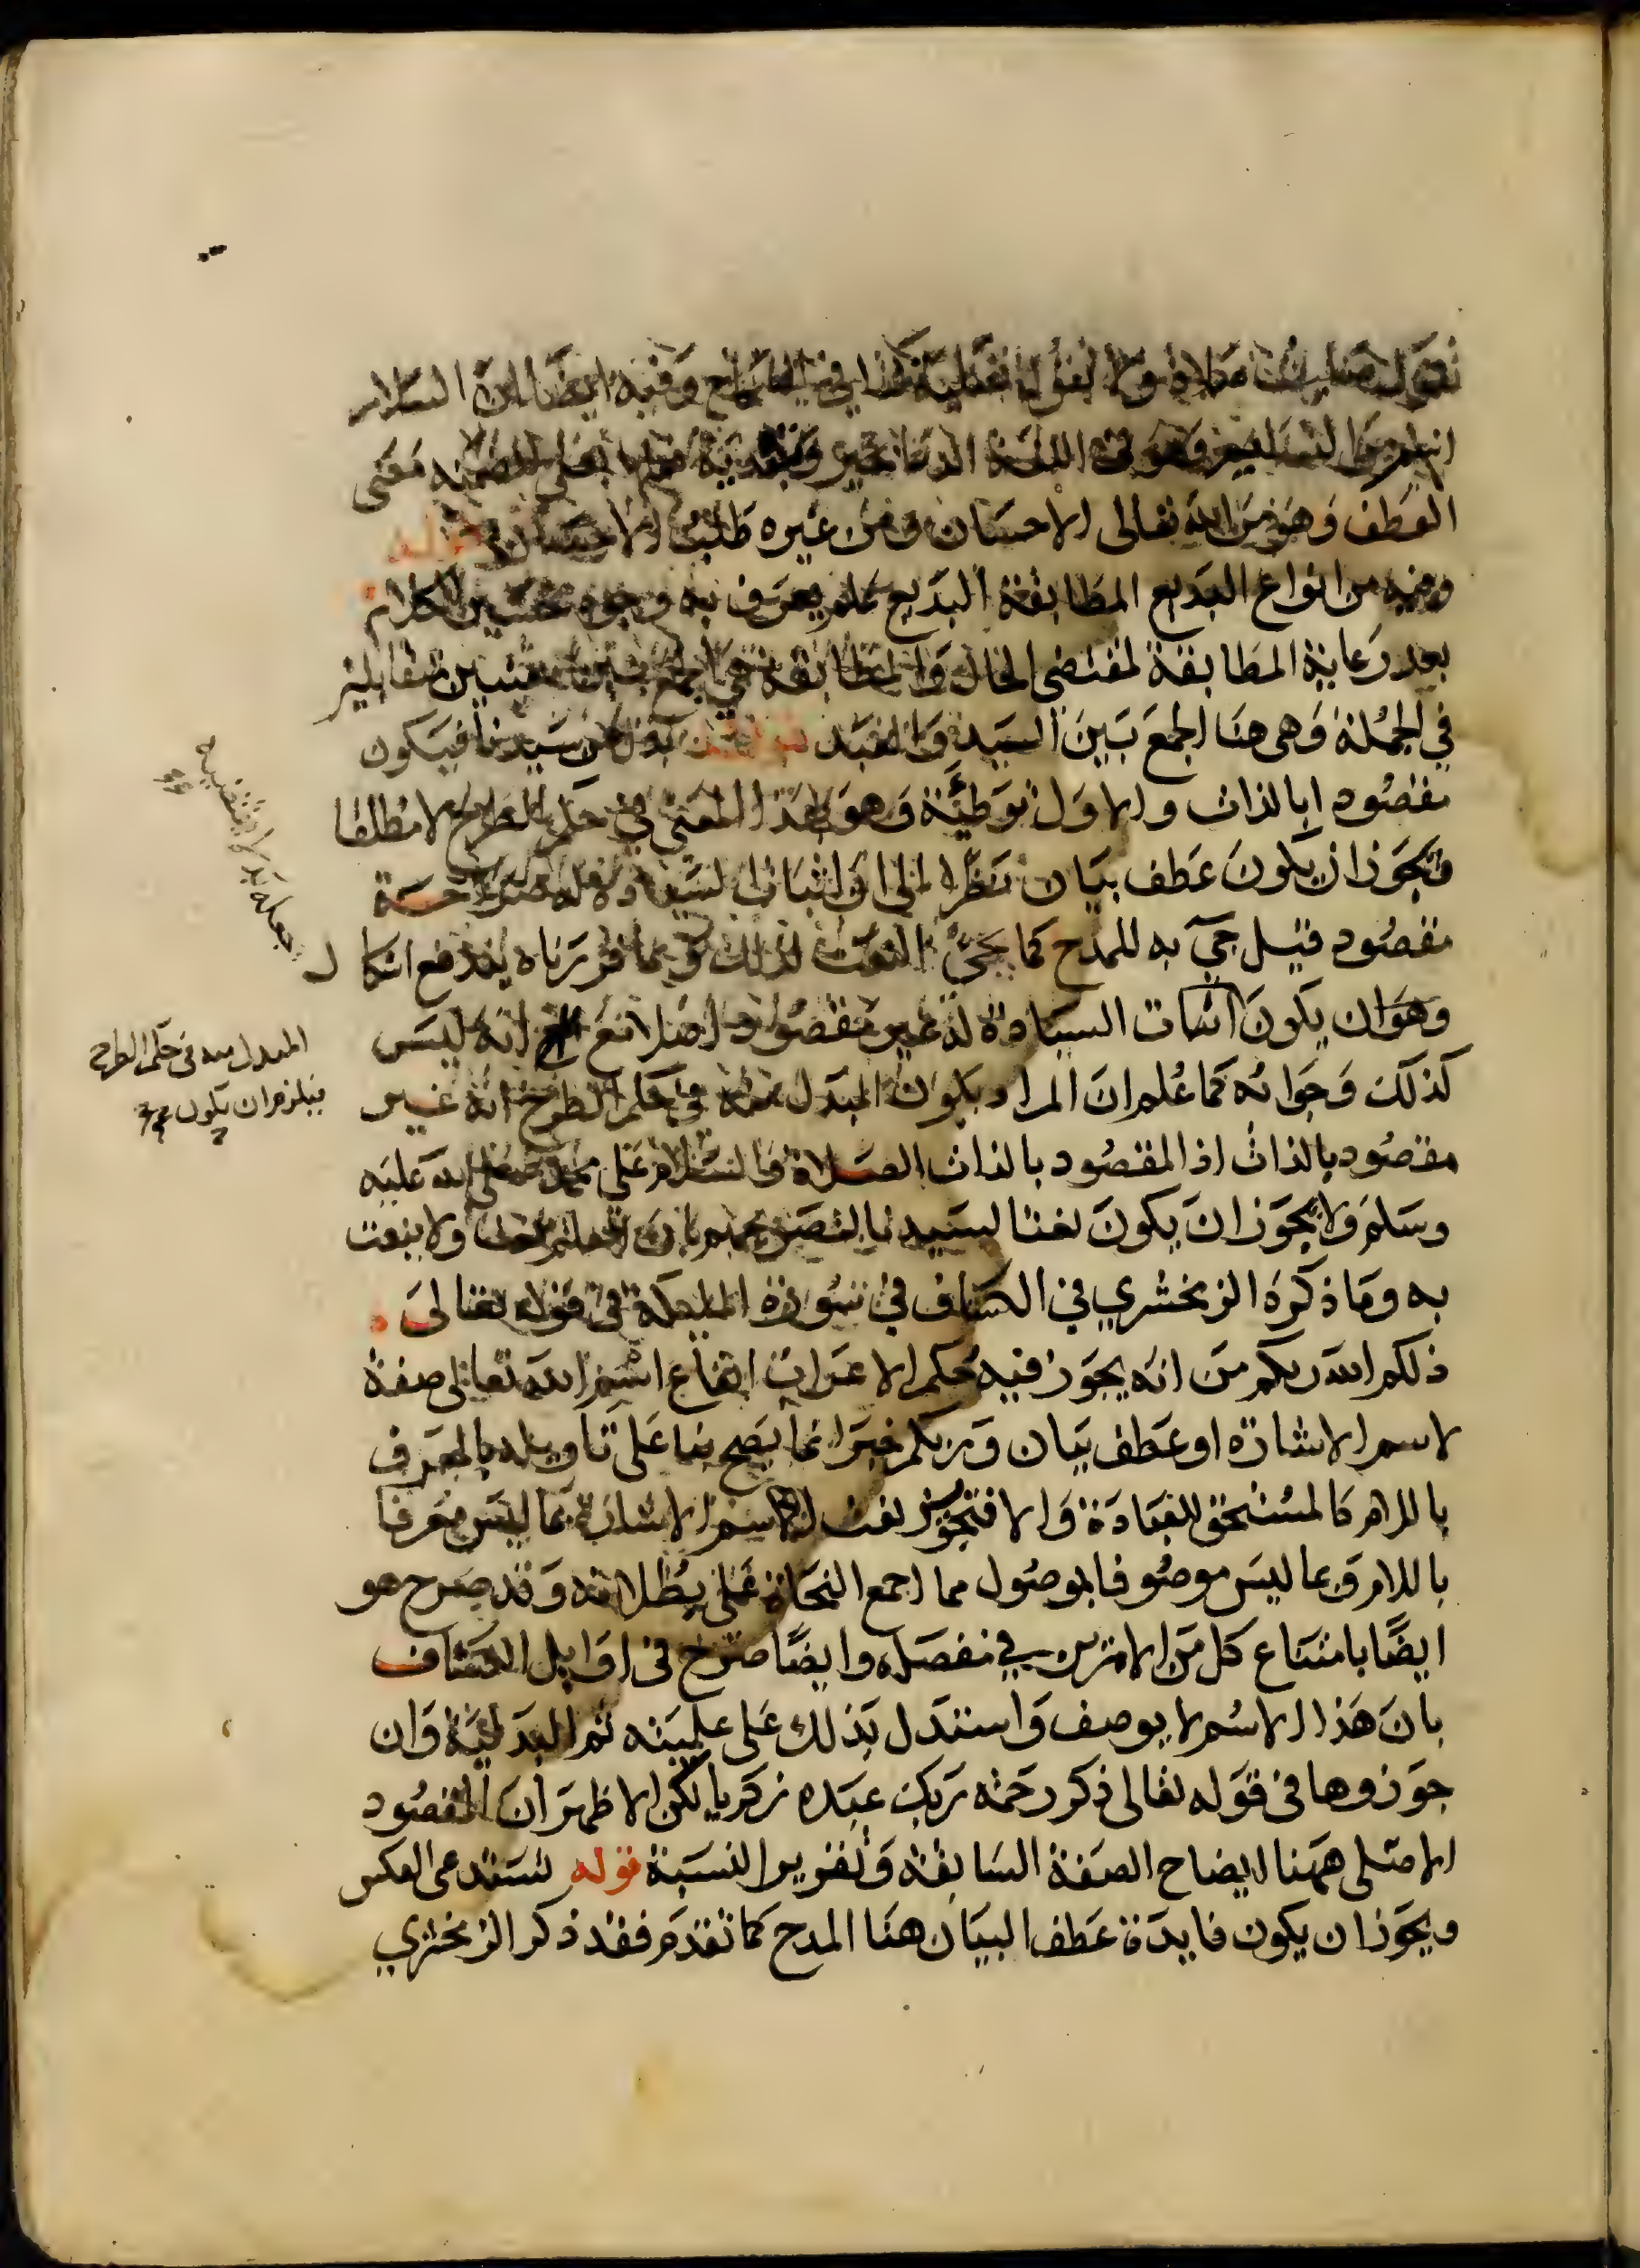 تقول صليت صلاة ولا تقول تصلية كذا في الصحاح وفيه ايضا ان السلام
اسم من التسليم وهو في اللغة الدعا بخير وتعديته بعلى لتضمنه معنى
العطف وهو من الله تعالى الاحسان ومن غيره طلب الاحسان قوله
وفيه من انواع البديع المطابقة البديع علم يعرف به وجوه تحسين الكلام
بعد رعاية المطابقة لمقتضى الحال والمطابقة هي الجمع بين متقابلين
في الجملة وهي هنا الجمع بين السيد والعبد قوله بدل من سيدنا فيكون
مقصودا بالذات والاول توطئة وهو بهذا المعنى في حكم الطرح لا مطلقا
ويجوز ان يكون عطف بيان نظرا الى ان اثبات السيادة له صراحة
مقصود قيل جي به للمدح كما يجي النعت لذلك وبما قررناه يندفع اشكال
وهو ان يكون اثبات السيادة له غير مقصود اصلا مع انه ليس
كذلك وجوابه كما علم ان المراد بكون المبدل منه في حكم الطرح انه غير
مقصود بالذات اذ المقصود بالذات الصلاة والسلام على محمد صلى الله عليه
وسلم ولا يجوز ان يكون نعتا لسيدنا لتصريحهم بان العلم ينعت ولا ينعت
به وما ذكره الزمخشري في الكشاف في سورة الملايكة في قوله تعالى
ذلكم الله ربكم من انه يجوز في حكم الاعراب ايقاع اسم الله تعالى صفة
لاسم الاشارة او عطف بيان وربكم خبرا انما يصح بنا على تاويله بالمعرف
باللام كالمستحق للعبادة والا فتجويز نعت اسم الاشارة بما ليس معرفا
باللام وبما ليس موصوفا بموصول مما اجمع النحاة على بطلانه وقد صرح هو
ايضا بامتناع كل من الامرين في مفصله وايضا صرح في اوايل الكشاف
بان هذا الاسم لا يوصف واستدل بذلك على علميته ثم البدلية وان
جوزوها في قوله تعالى ذكر رحمة ربك عبده زكريا لكن الاظهر ان المقصود
الاصلي ههنا ايضاح الصفة السابقة وتقرير النسبة قوله تستدعي العكس
ويجوز ان يكون فايدة عطف البيان هنا المدح كما تقدم فقد ذكر الزمخشري
المبدل منه في حكم الطرح
فيلزم ان يكون